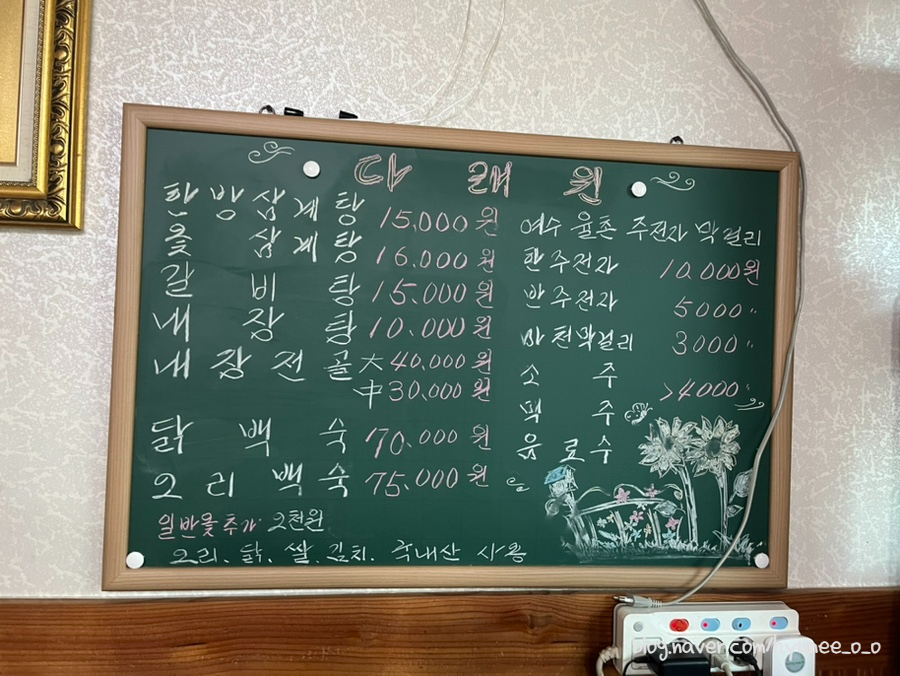 다래원
한방삼계탕 15,000원
옻삼계탕 16.000원
갈비탕 15.000원
내장탕 10.000원
내장전골 大 40,000원
中 30,000원
닭백숙 70.000원
오리백숙 75.000원
일반옻추가 2천원
오리. 닭. 쌀. 김치. 국내산 사용
여수 율촌 주전자 막걸리
한주전자 10,000원
반주전자 5000〃
바천막걸리 3000〃
소주
>4000〃
맥주
음료수
blog.naver.com/
ee_o_o